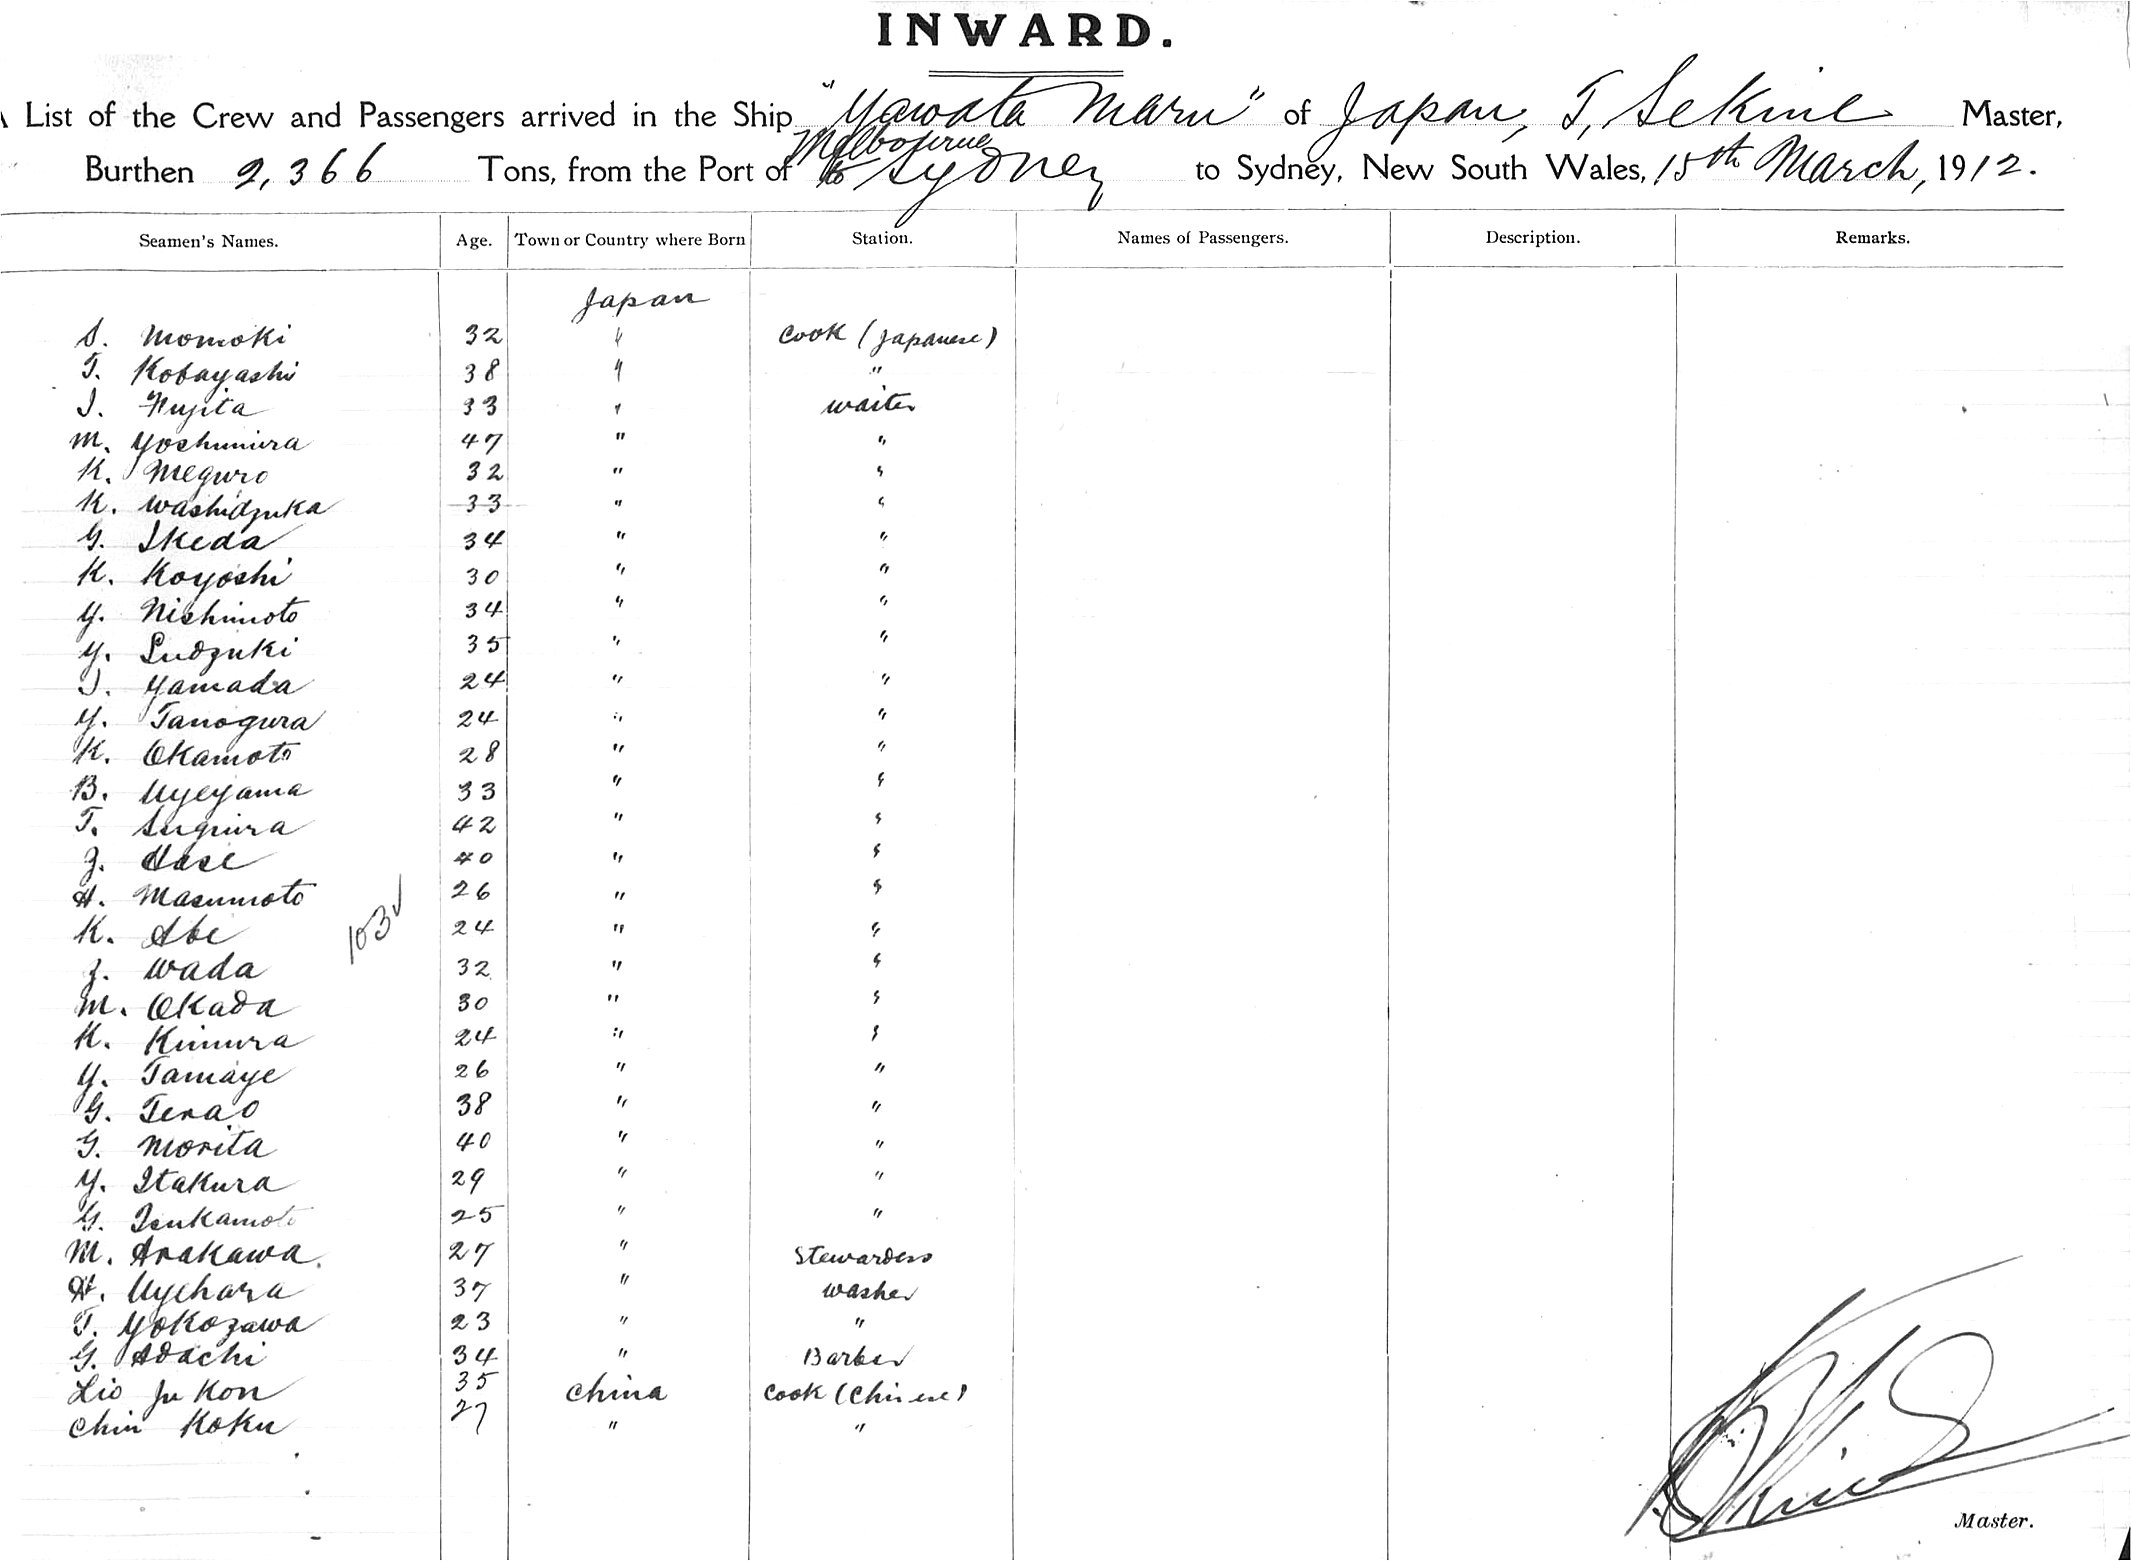 INWARD.
A List of the Crew and Passengers arrived in the Ship "Yawata Maru" of Japan, T, Sekine Master,
Burthen 2,366 Tons, from the Port of Melbourne to Sydney to Sydney, New South Wales, 15th March, 1912.
Seamen's Names. Age. Town or Country where Born Station. Names of Passengers. Description. Remarks.
Japan
S. Momoki 32 " Cook (Japanese)
T. Kobayashi 38 " "
I. Fujita 33 " waiter
M. Yoshimura 47 " "
K. Meguro 32 " "
K. Washidzuka 33 " "
G. Ikeda 34 " "
K. Koyoshi 30 " "
Y. Nishimoto 34 " "
Y. Sudzuki 35 " "
I. Yamada 24 " "
Y. Tanogura 24 " "
K. Okamoto 28 " "
B. Uyeyama 33 " "
T. Sugiura 42 " "
Z. Hase 40 " "
H. Masumoto 26 " "
K. Abe 103 24 " "
Z. Wada 32 " "
M. Okada 30 " "
K. Kimura 24 " "
Y. Tamaye 26 " "
G. Terao 38 " "
G. Morita 40 " "
Y. Itakura 29 " "
G. Tsukamoto 25 " "
M. Arakawa. 27 " Stewardess
H. Uyehara 37 " washer
T. Yokozawa 23 " "
G. Adachi 34 " Barber
Lio Ju Kon 35 China Cook (Chinese)
Chin Koku 27 " "
Master.